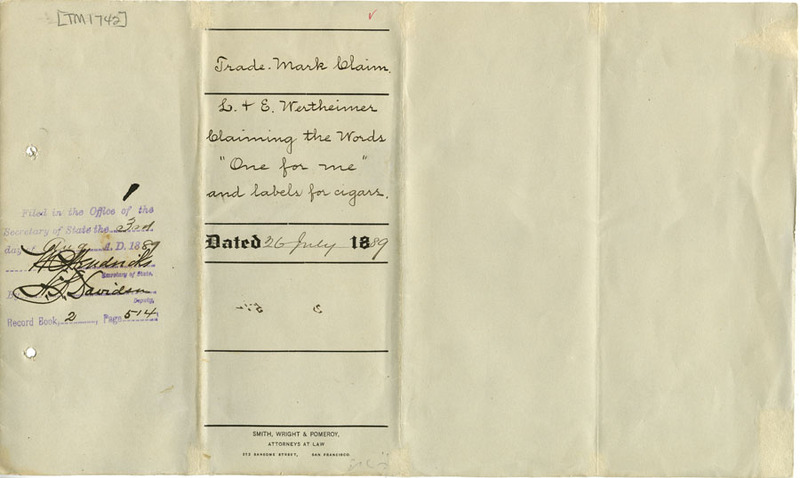 [TM1742]
Filed in the Office of the
Secretary of State the 3rd
day of Aug A. D. 1889
W C Hendricks
Secretary of State.
By Davidson
Deputy.
Record Book, 2, Page 514
Trade-Mark Claim.
L. & E. Wertheimer
Claiming the Words
"One for me"
and labels for cigars.
Dated 26 July 1889
SMITH, WRIGHT & POMEROY,
ATTORNEYS AT LAW
SANSOME STREET, SAN FRANCISCO.